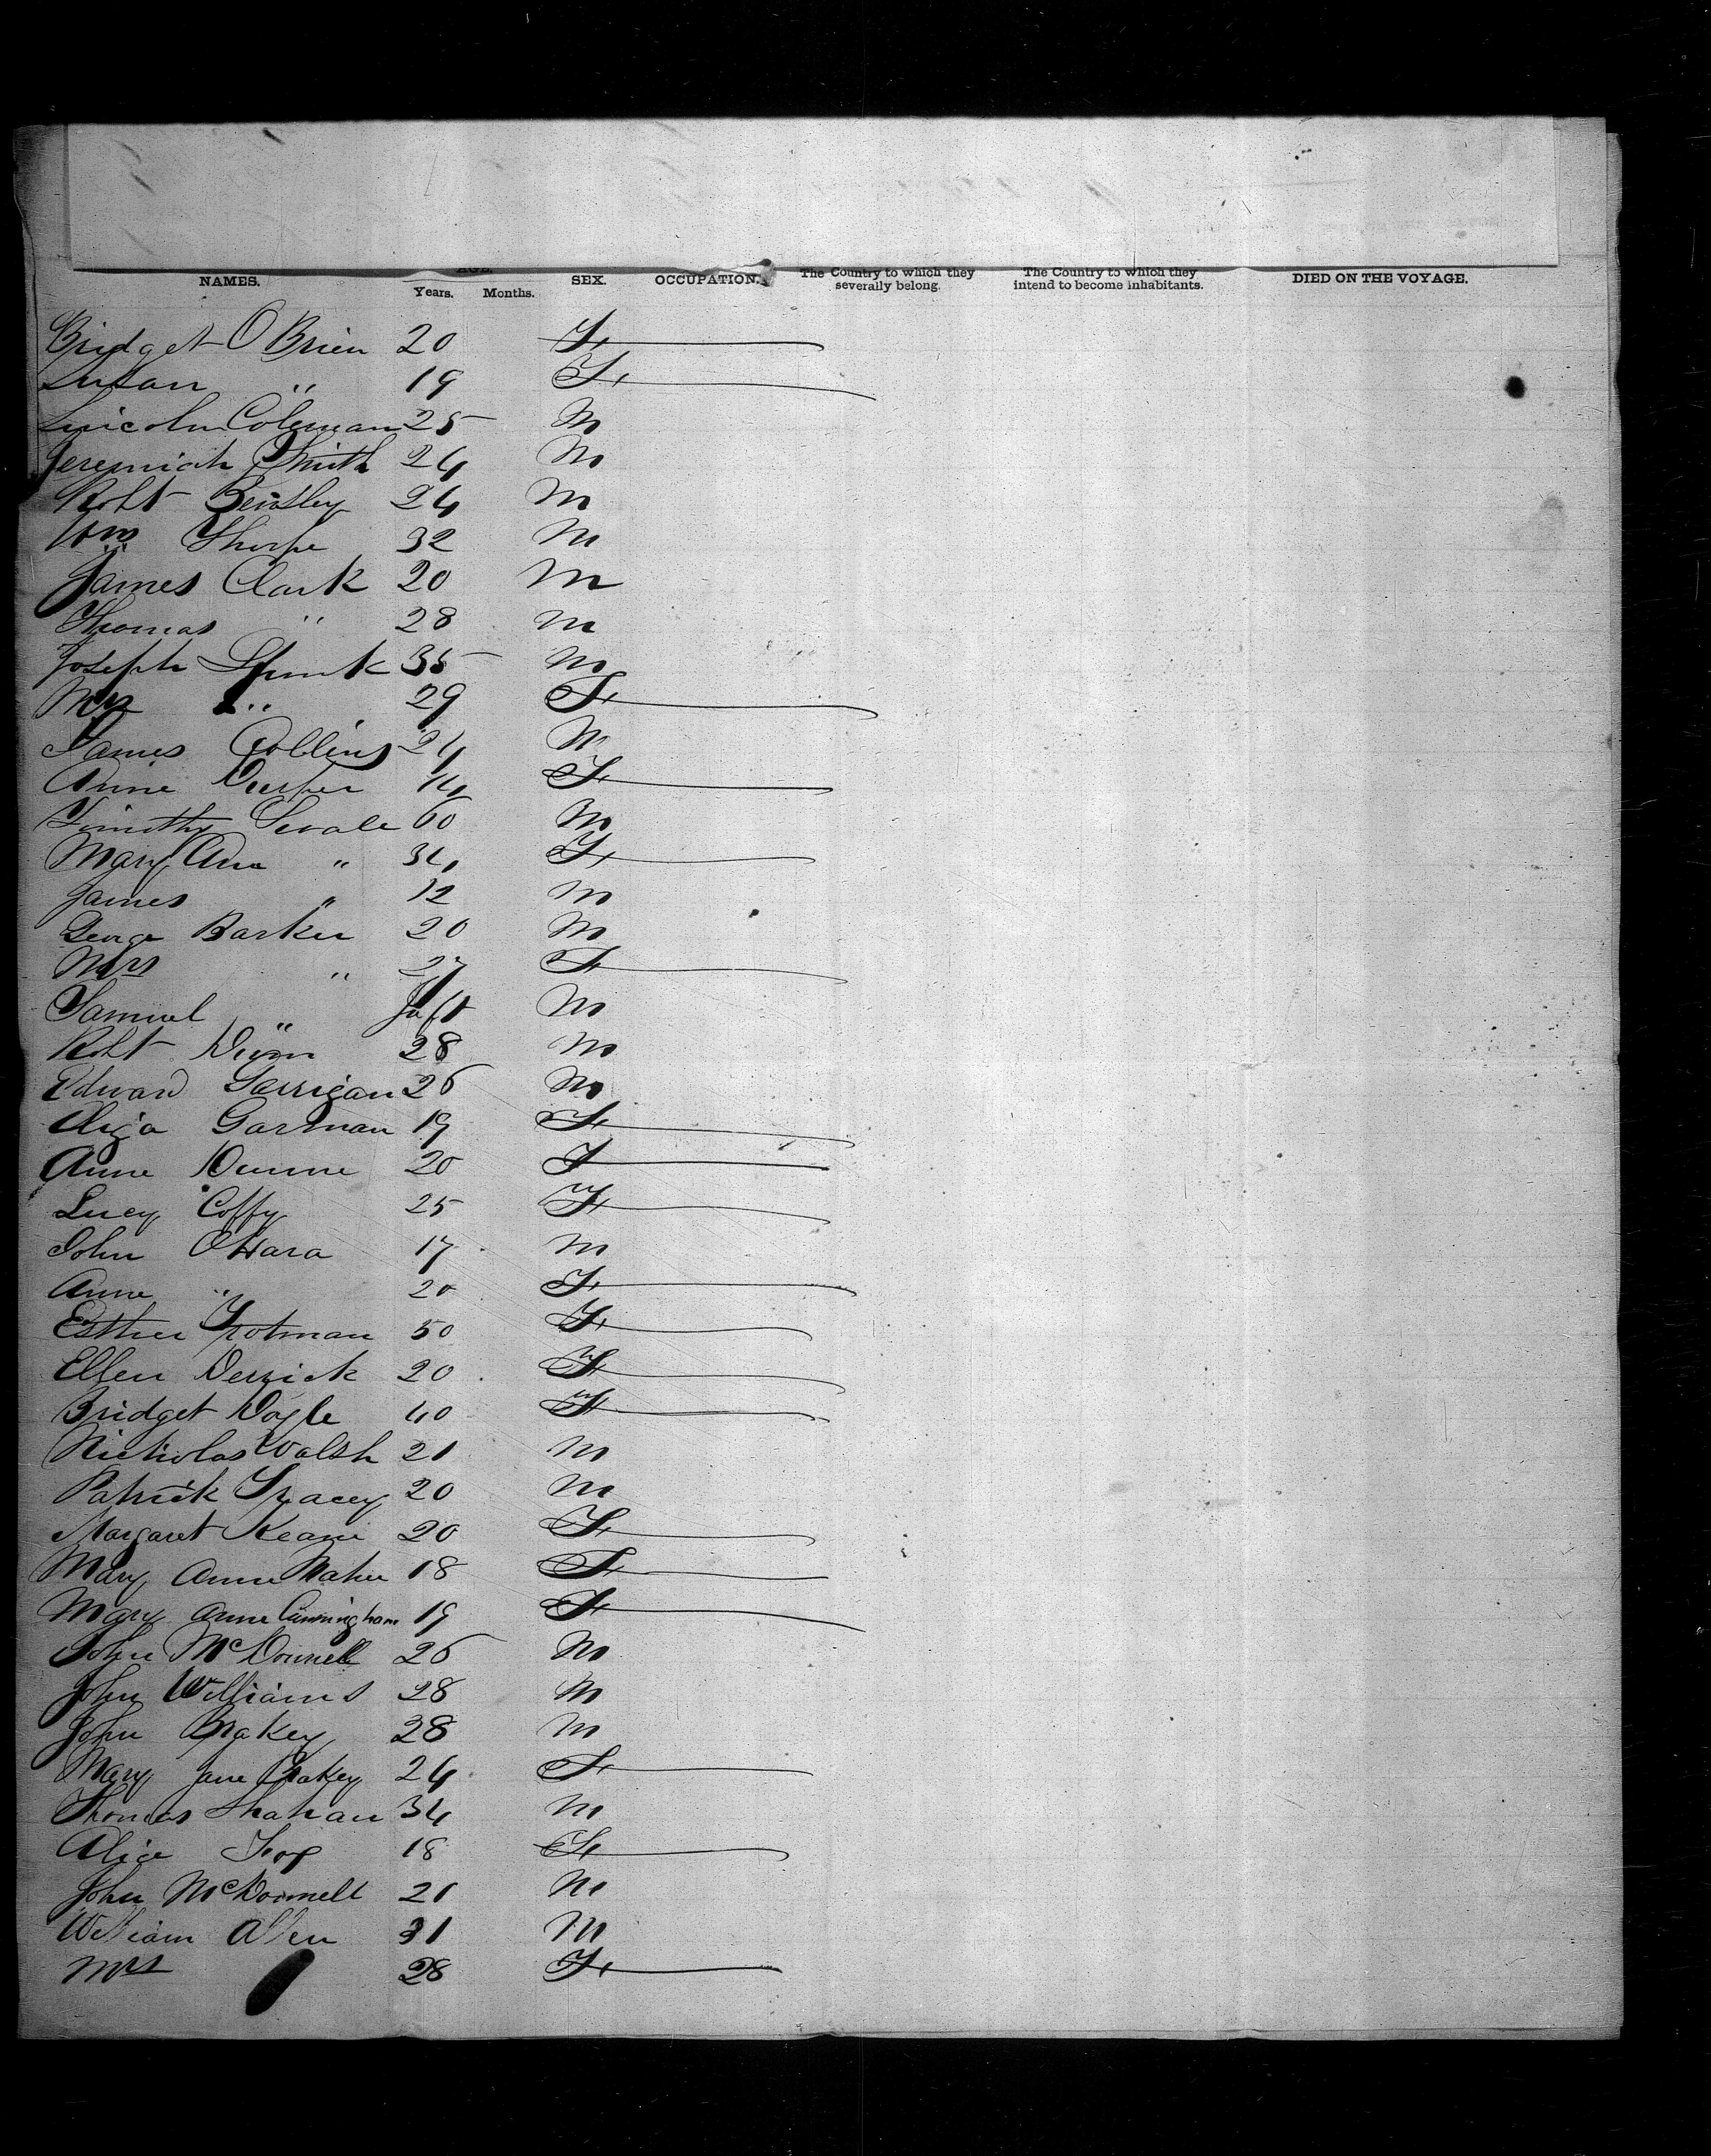 NAMES. AGE. Years. Months. SEX. OCCUPATION. The Country to which they severally belong. The Country to which they intend to become inhabitants. DIED ON THE VOYAGE.
Bridget O Brien 20 F
Susan " 19 F
Lincoln Coleman 25 M
Jeremiah Smith 24 M
Robt Beasley 24 M
Wm Thorpe 32 M
James Clark 20 M
Thomas " 28 M
Joseph Spink 35 M
Mrs " 29 F
James Collins 24 M
Anne 14 F
Timothy 60 M
Mary Ann " 34 F
James " 12 M
George Barker 20 M
Mrs " 27 F
Samuel " Inft M
Robt 28 M
Edward Garrigan 26 M
Eliza Garman 19 F
Anne Dunne 20 F
Lucy Coffy 25 F
John OHara 17 M
Anne " 20 F
Esther Trotman 50 F
Ellen Derrick 20 F
Bridget Doyle 40 F
Nicholas Walsh 21 M
Patrick Tracey 20 M
Margaret Keane 20 F
Mary Anne Maher 18 F
Mary Anne Cunningham 19 F
John McDonnell 26 M
John Williams 28 M
John Brakey 28 M
Mary Jane Brakey 24 F
Thomas Shahan 34 M
Alice Fox 18 F
John McDonnell 21 M
William Allen 31 M
Mrs 28 F